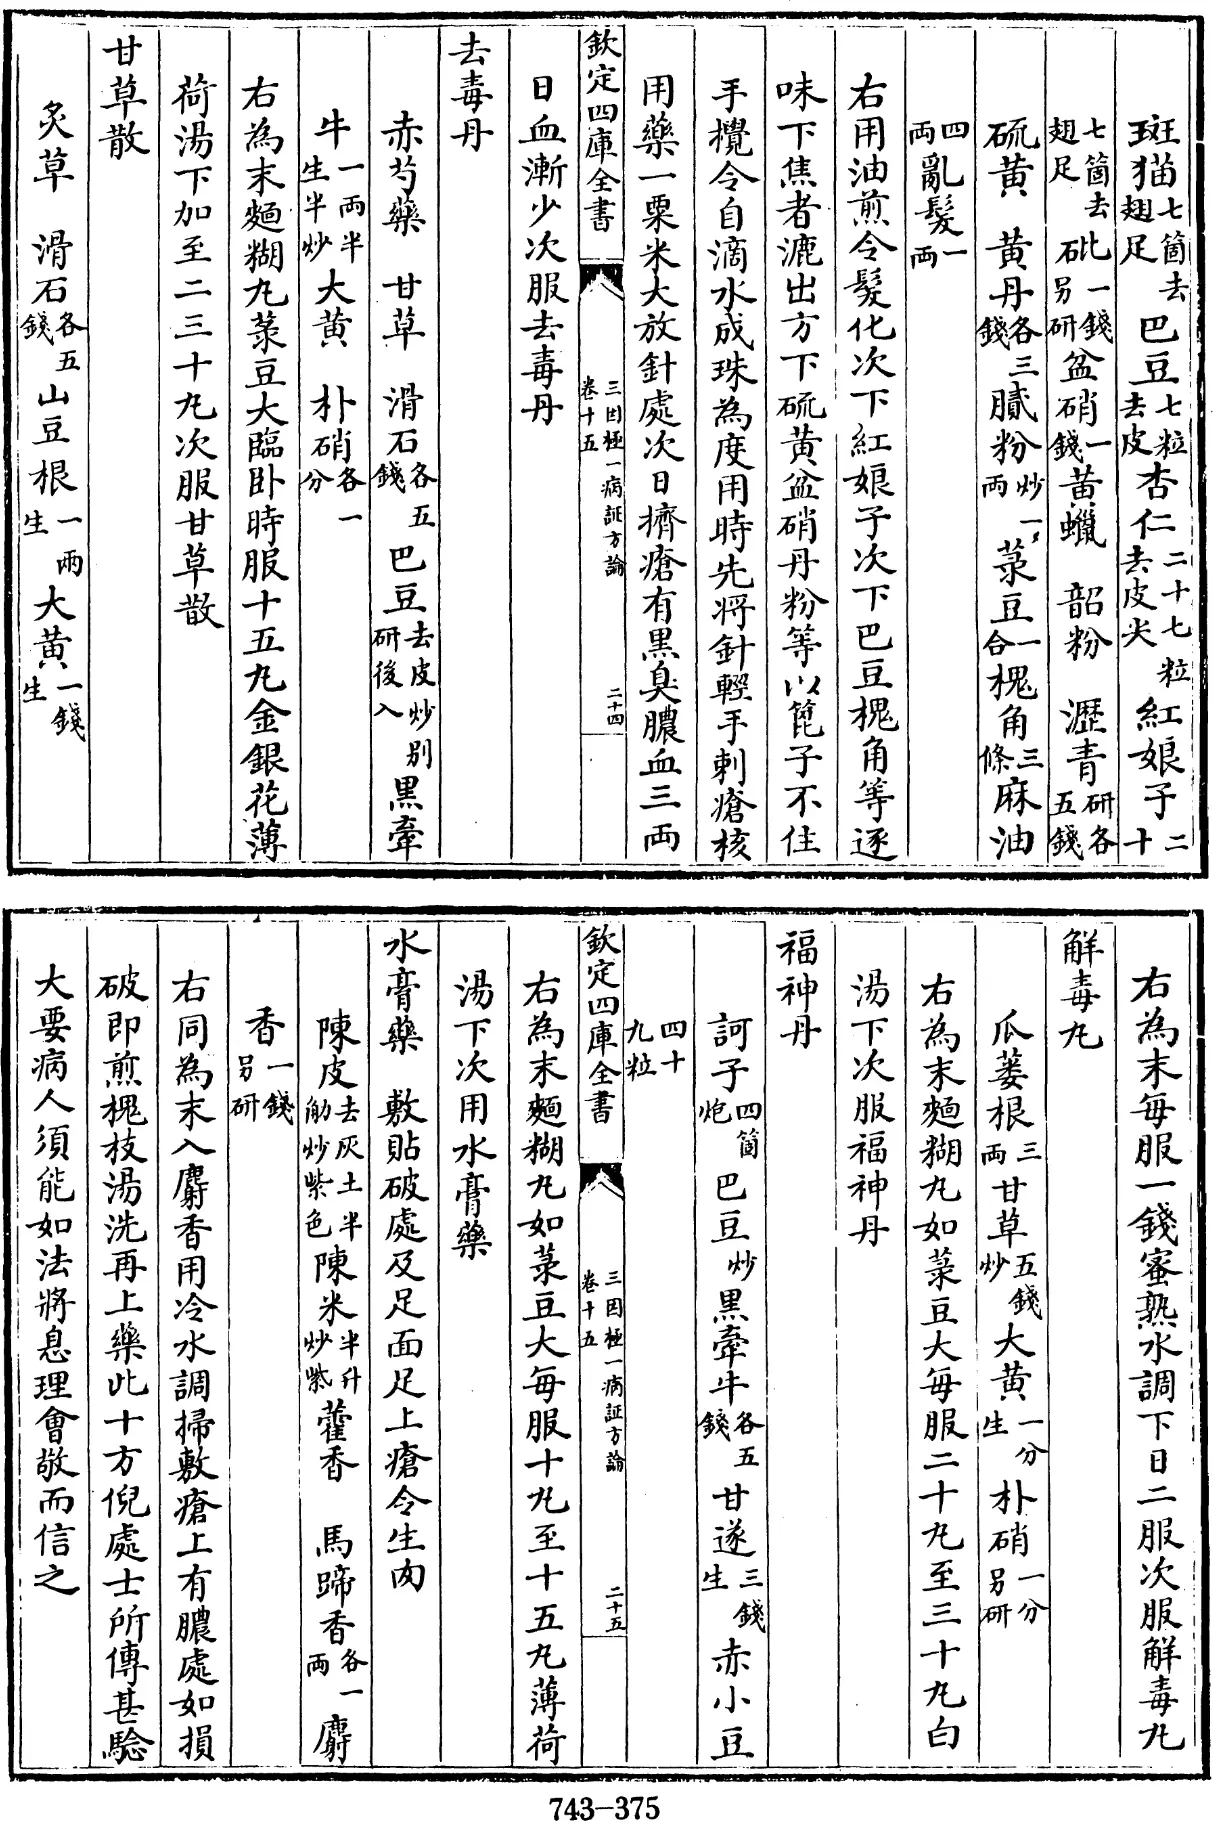 斑猫七箇去翅足 巴豆七粒去皮 杏仁二十七粒去皮尖 紅娘子二十
七箇去翅足 砒一錢另研 盆硝一錢 黄蠟 韶粉 瀝青研各五錢
硫黄 黄丹各三錢 膩粉炒一兩 菉豆一合 槐角三條 麻油
四兩 亂髮一兩
右用油煎令髮化次下紅娘子次下巴豆槐角等逐
味下焦者漉出方下硫黄盆硝丹粉等以篦子不住
手攪令自滴水成珠為度用時先將針輕手刺瘡核
用藥一粟米大放針處次日擠瘡有黒臭膿血三兩
欽定四庫全書 三因極一病証方論 卷十五 二十四
日血漸少次服去毒丹
去毒丹
赤芍藥 甘草 滑石各五錢 巴豆去皮炒别研後入 黒牽
牛一兩半生半炒 大黄 朴硝各一分
右為末麺糊九菉豆大臨卧時服十五九金銀花薄
荷湯下加至二三十九次服甘草散
甘草散
炙草 滑石各五錢 山豆根一兩生 大黄一錢生
右為末每服一錢蜜熟水調下日二服次服解毒九
解毒九
瓜蔞根三兩 甘草五錢炒 大黄一分生 朴硝一分另研
右為末麺糊九如菉豆大每服二十九至三十九白
湯下次服福神丹
福神丹
訶子四箇炮 巴豆炒 黒牽牛各五錢 甘遂三錢生 赤小豆
四十九粒
欽定四庫全書 三因極一病証方論 卷十五 二十五
右為末麺糊九如菉豆大每服十九至十五九薄荷
湯下次用水膏藥
水膏藥 敷貼破處及足面足上瘡令生肉
陳皮去灰土半觔炒紫色 陳米半升炒紫 藿香 馬蹄香各一兩 麝
香一錢另研
右同為末入麝香用冷水調掃敷瘡上有膿處如損
破即煎槐枝湯洗再上藥此十方倪處士所傳甚驗
大要病人須能如法將息理會敬而信之
743-375